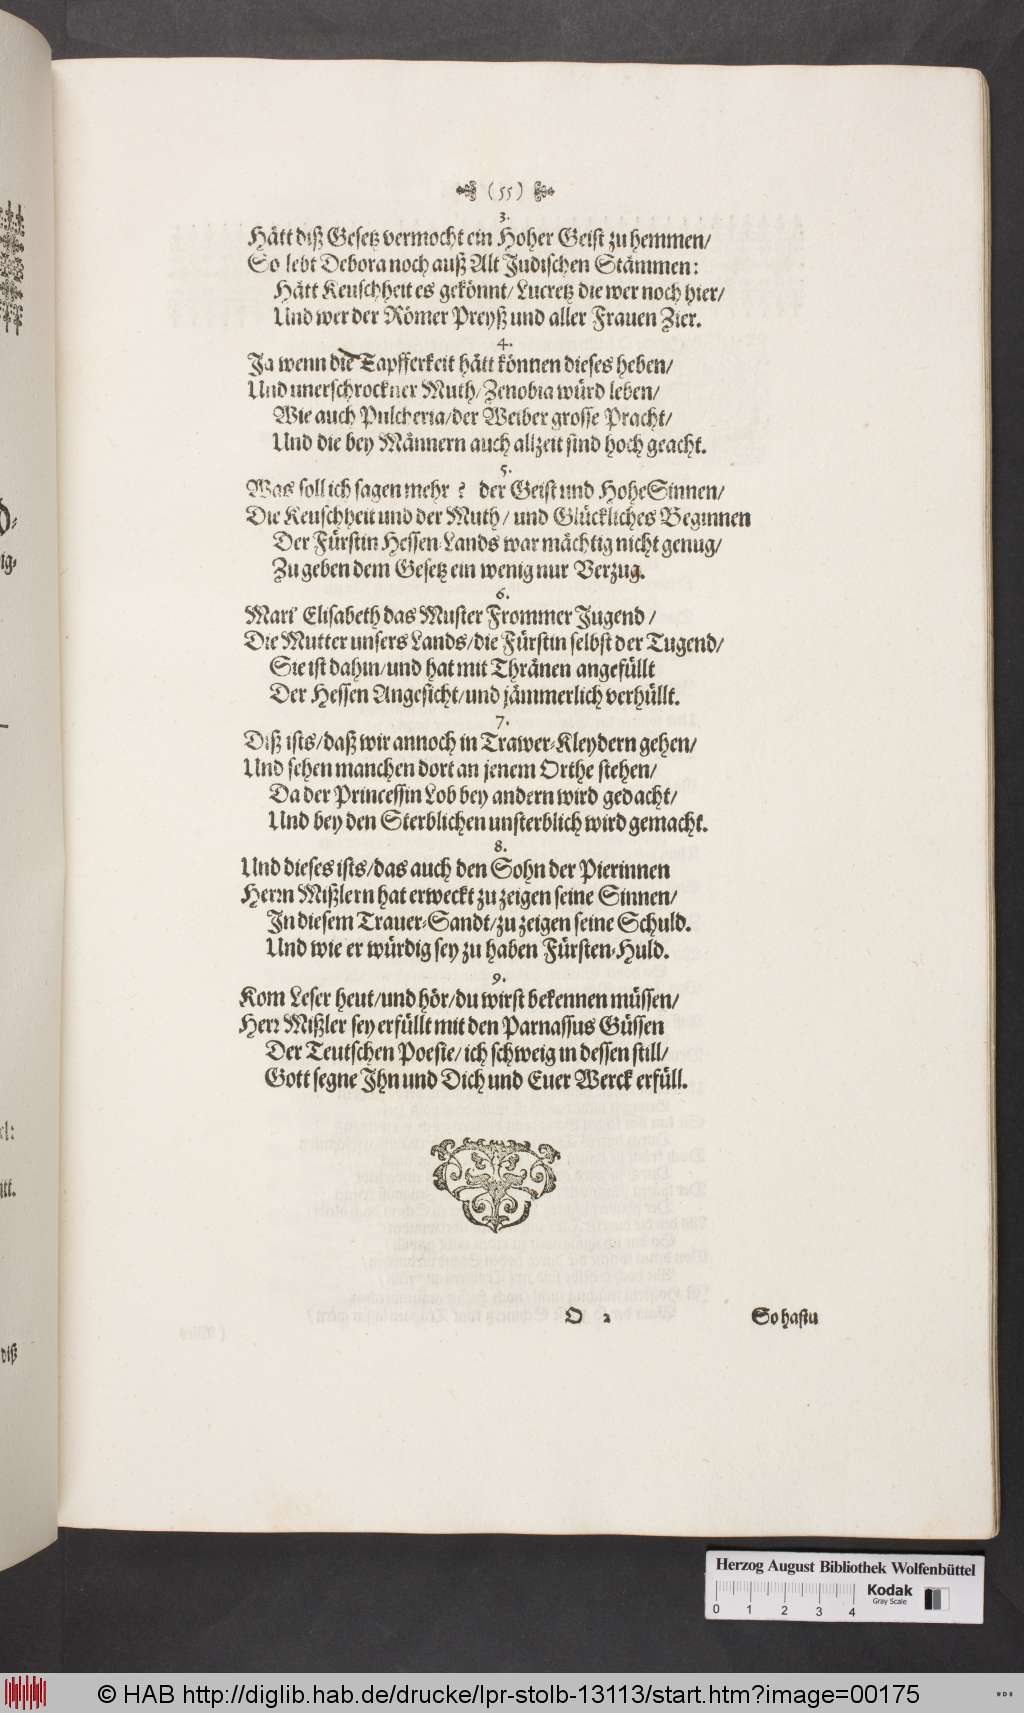 (55)
3.
Hätt diß Gesetz vermocht ein Hoher Geist zu hemmen/
So lebt Debora noch auß Alt Jüdischen Stämmen:
Hätt Keuschheit es gekönnt/ Lucretz die wer noch hier/
Und wer der Römer Preyß und aller Frauen Zier.
4.
Ja wenn die Tapfferkeit hätt können dieses heben/
Und unerschrockner Muth/ Zenobia würd leben/
Wie auch Pulcheria/ der Weiber grosse Pracht/
Und die bey Männern auch allzeit sind hoch geacht.
5.
Was soll ich sagen mehr? der Geist und Hohe Sinnen/
Die Keuschheit und der Muth/ und Glückliches Beginnen
Der Fürstin Hessen-Lands war mächtig nicht genug/
Zu geben dem Gesetz ein wenig nur Verzug.
6.
Mari' Elisabeth das Muster Frommer Jugend/
Die Mutter unsers Lands/ die Fürstin selbst der Tugend/
Sie ist dahin/ und hat mit Thränen angefüllt
Der Hessen Angesicht/ und jämmerlich verhüllt.
7.
Diß ists/ daß wir annoch in Trawer-Kleydern gehen/
Und sehen manchen dort an jenem Orthe stehen/
Da der Princessin Lob bey andern wird gedacht/
Und bey den Sterblichen unsterblich wird gemacht.
8.
Und dieses ists/ das auch den Sohn der Pierinnen
Herrn Mißlern hat erweckt zu zeigen seine Sinnen/
In diesem Trauer-Sandt/ zu zeigen seine Schuld.
Und wie er würdig sey zu haben Fürsten-Huld.
9.
Kom Leser heut/ und hör/ du wirst bekennen müssen/
Herr Mißler sey erfüllt mit den Parnassus Güssen
Der Teutschen Poesie/ ich schweig in dessen still/
Gott segne Ihn und Dich und Euer Werck erfüll.
O 2
So hastu
Herzog August Bibliothek Wolfenbüttel
0 1 2 3 4
Kodak
Gray Scale
© HAB http://diglib.hab.de/drucke/lpr-stolb-13113/start.htm?image=00175